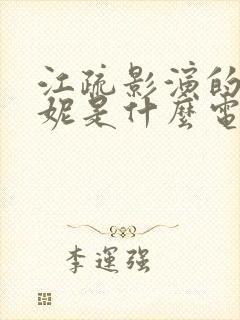 江疏影演的
妮是什麼電
李運强